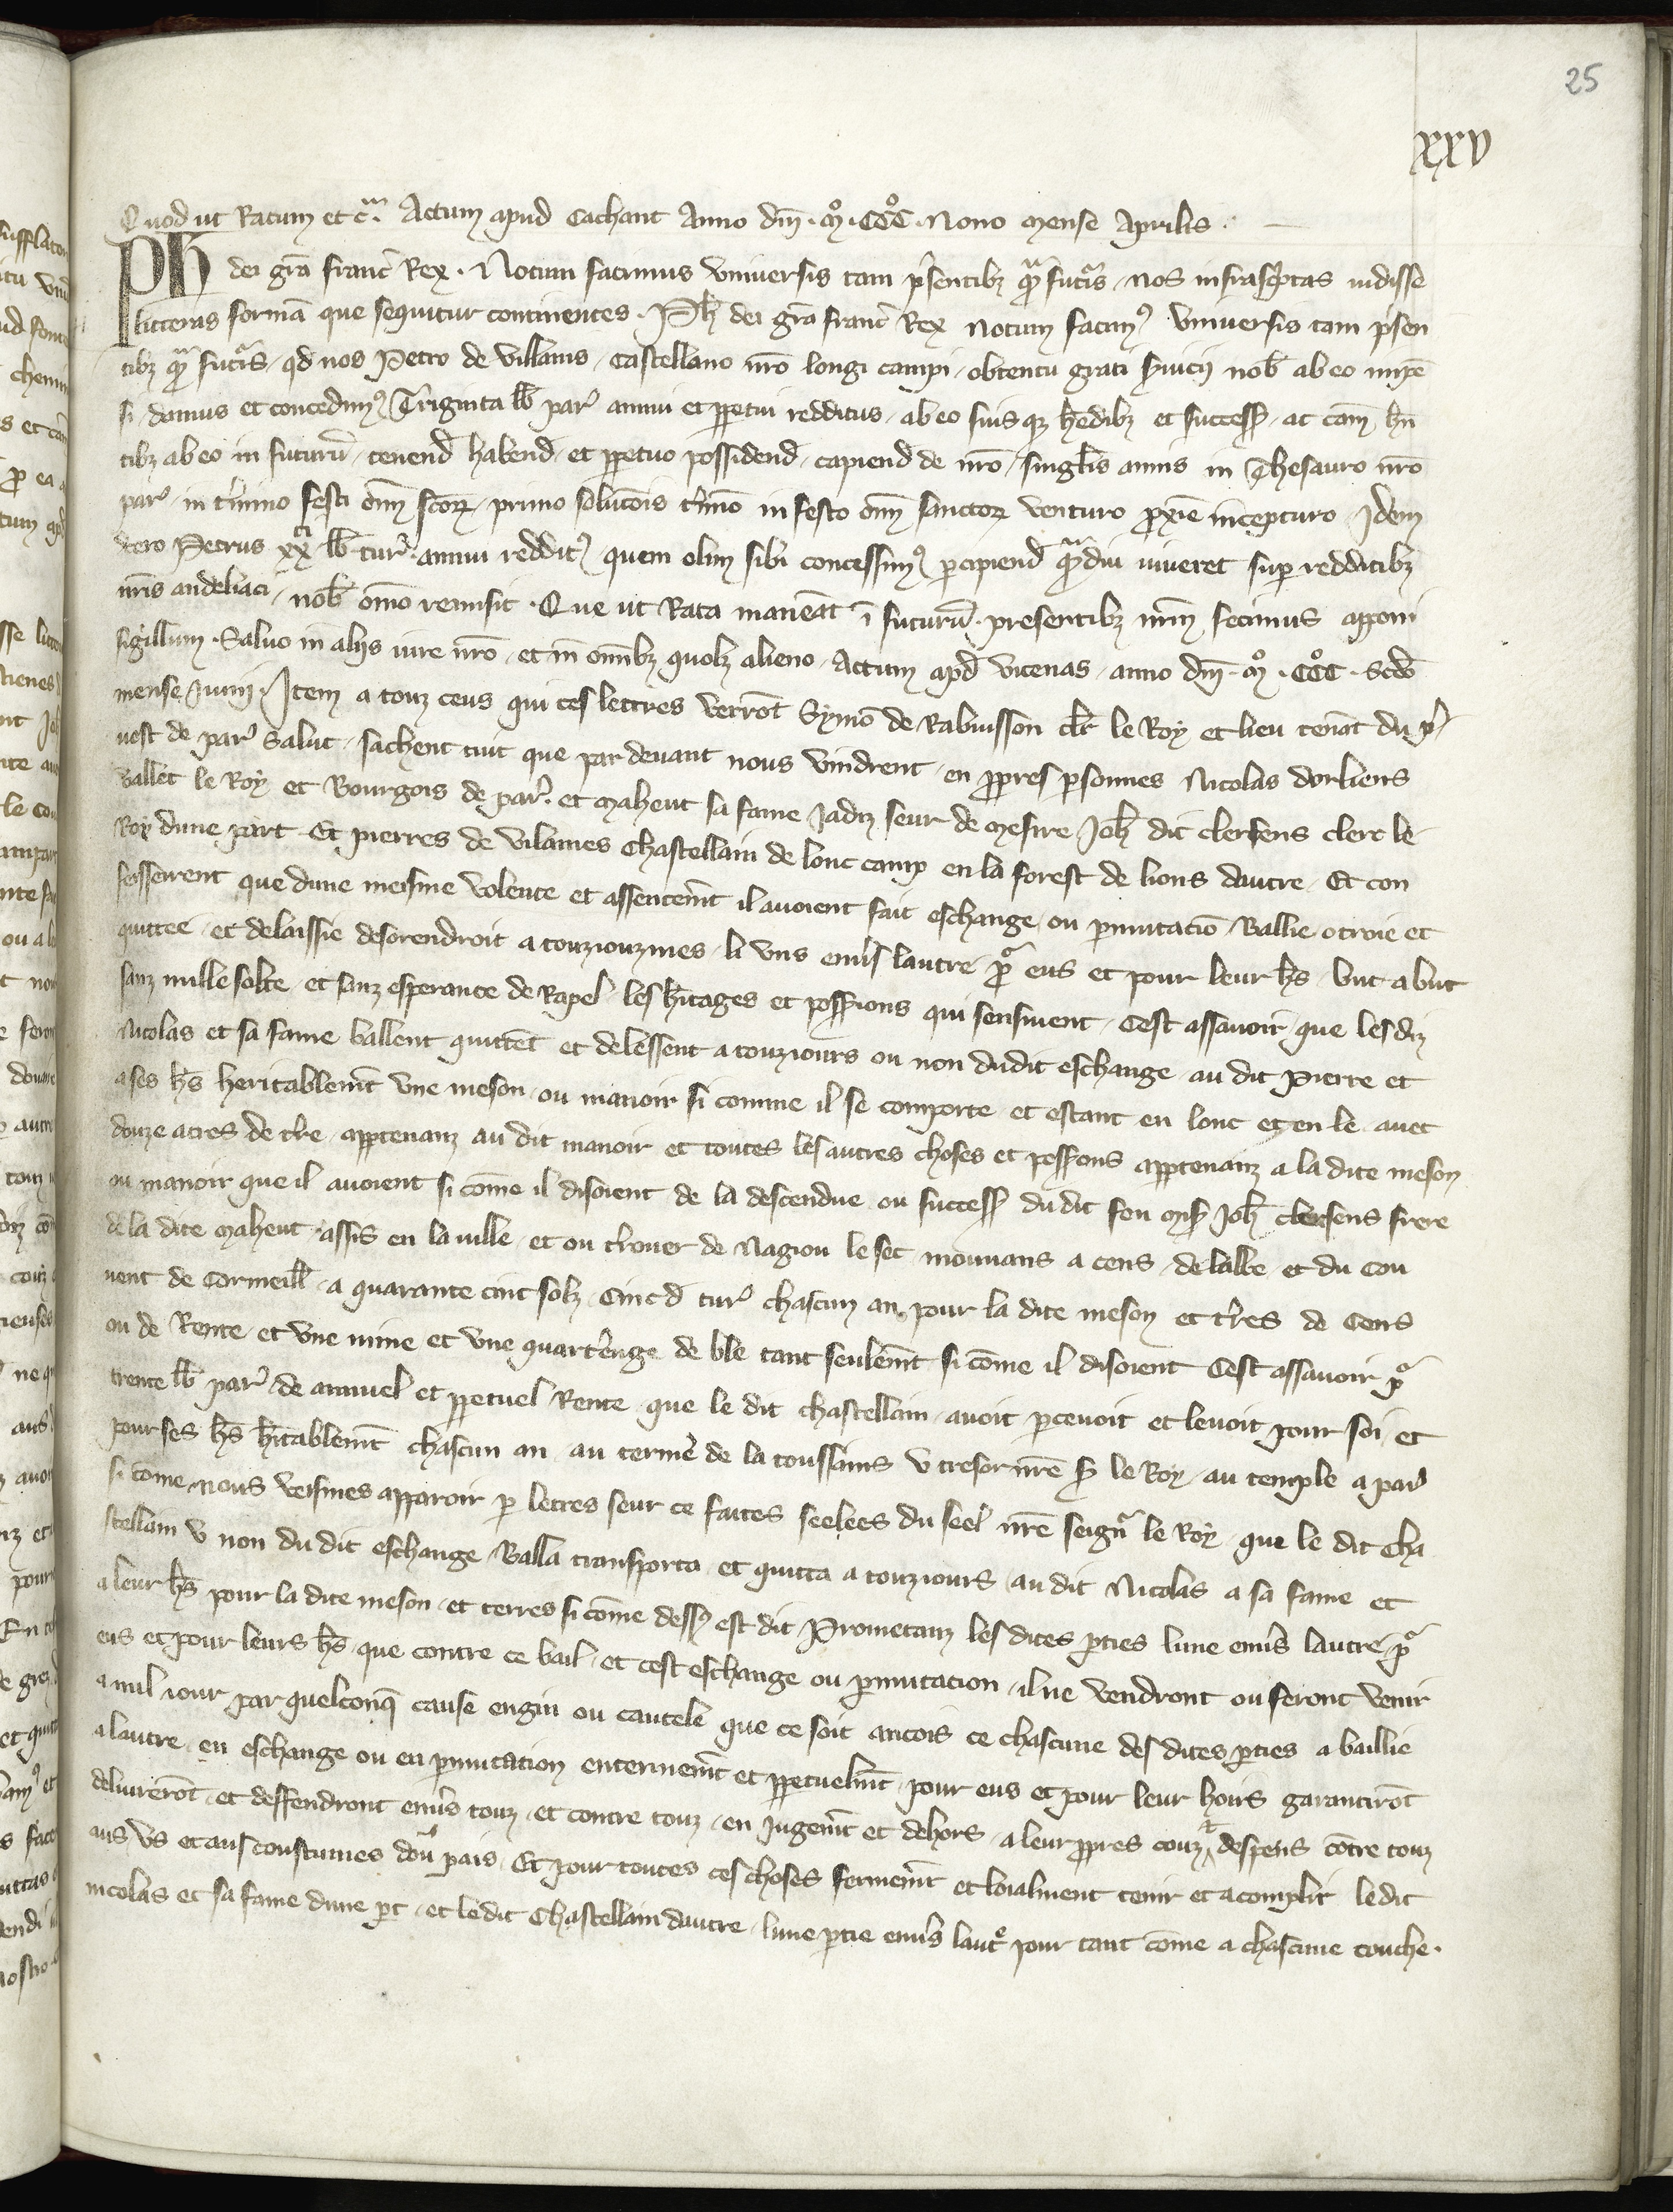 25
xxv
Quod ut Ratum et cͣ. Actum apud Cachant Anno dm̄ . mº . CCCº . Nono mense Aprilis .
Ph dei gr̄a franc̄ Rex . Notum facimus universis tam p̄sentibꝫ qͣm futuris nos infrasc̄ptas vidisse
litteras formā que sequitur continentes . Ph̄ dei gr̄a franc̄ Rex notum facimꝰ universis tam p̄sen
tibꝫ qͣm futuris qd̄ nos Petro de villanis castellano nr̄o longi campi obtentu grati s̄vicij nob̄ ab eo impē
si damus et concedimꝰ Triginta lb̄ par̄ annui et ꝑpetui redditus ab eo suis qꝫ h̄edibꝫ et success̄ ac cām h̄n
tibꝫ ab eo in futurū tenend̄ habend̄ et ꝑpetuo possidend̄ capiend̄ de nr̄o singl̄is annis in Thesauro nr̄o
par̄ in t̄mino festi om̄ sc̄orꝫ primo solucōis t̄mīo in festo om̄ sanctorꝫ venturo ꝓxīe incepturo Idem
vero Petrus xx lb̄ tur̄ annui redditꝰ quem olim sibi concessimꝰ ꝑcipiend̄ qͣmdiu viveret suꝑ redditibꝫ
nr̄is andeliaci nob̄ om̄o remisit . Que ut Rata maneāt ī futurū . presentibꝫ nr̄m fecimus apponi
sigillum . Salvo in alijs iure nr̄o et in om̄ibꝫ quolꝫ alieno . Actum apd̄ vicenas anno dm̄ . mº . CCCº . scd̄o
mense Junij . Item a touz ceus qui ces lettres verrōt Symō de Rabuisson cl̄r le Roy et lieu tenāt du p̄
vost de par̄ salut . sachent tuit que par devant nous vindrent en ꝓpres ꝑsonnes Nicolas dorliens
vallet le Roy et Bourgois de par̄ . et Maheut sa fame Jadiz seur de mesire Joh̄ dit clersens clerc le
Roy dune part Et pierres de vilaines Chastellain de lonc camp en la forest de lions dautre Et con
fesserent que dune meisme volente et assentemt̄ il avoient fait eschange ou ꝑmutaciō Ballie otroie et
quittee et delaissie desorendroit a touziourzmes li uns env̄s lautre pͬ eus et pour leur h̄s but a but
sanz nulle solte et sanz esperance de Rapel les h̄itages et possess̄ions qui sensivent Cest assavoir que les diz
Nicolas et sa fame ballent quittēt et delessent a touziours ou non dudit eschange au dit Pierre et
a ses h̄s heritablemt̄ une meson ou manoir si comme il se comporte et estant en lonc et en le avec
douze acres de t̄re apꝑtenanz au dit manoir et toutes les autres choses et possess̄ons apꝑtenanz a la dite meson
ou manoir que il avoient si cōme il disoient de la descendue ou success̄ du dit feu mes̄ Joh̄ clersens frere
de la dite Maheut assis en la ville et ou t̄rouer de Nagiou le sec mouvans a cens de labbe et du cou
vent de Cormeill̄ a quarante cinc solz cinc d̄ tur̄ chascun an pour la dite meson et t̄res de Cens
ou de Rente et une mine et une quart̄enge de ble tant seulemt̄ si cōme il disoient Cest assavoir pͬ
trente lb̄ par̄ de annuel et ꝑpetuel Rente que le dit chastellain avoit ꝑcevoit et levoit pour soi et
pour ses h̄s h̄itablemt̄ chascun an au terme de la toussains u tresor nr̄e s̄ le Roy au temple a par̄
si cōme nous veismes apparoir ꝑ letres seur ce faites seelees du seel nr̄e seignͬ le Roy que le dit cha
stellain u non du dit eschange Balla transporta et quitta a touziours au dit Nicolas a sa fame et
a leur h̄s pour la dite meson et terres si cōme dessꝰ est dit Prometanz les dites ꝑties lune env̄s lautre pͬ
eus et pour leurs h̄s que contre ce bail et cest eschange ou ꝑmutacion il ne vendront ou feront venir
a nul iour par quelconq̄ cause engin ou cautele que ce soit ancois ce chascune des dites ꝑties a baillie
a lautre en eschange ou en ꝑmutacion enterinemt̄ et ꝑpetuelmt̄ pour eus et pour leur hoirs garantirōt
delivrerōt et deffendront env̄s touz et contre touz en Jugemt̄ et dehors a leur ꝓpres couz et despens cōtre touz
aus us et aus coustumes dou pais Et pour toutes ces choses fermemt̄ et loialment tenir et acomplir ledit
nicolas et sa fame dune ꝑt et ledit Chastellain dautre lune ꝑtie env̄s lautͤ pour tant cōme a chascune touche .